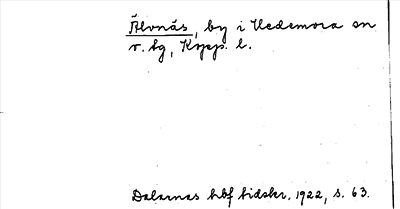 Älvnäs, by i Hedemora sn
v. tg, Kopp. l.
Dalarnas hbf tidskr. 1922, s. 63.